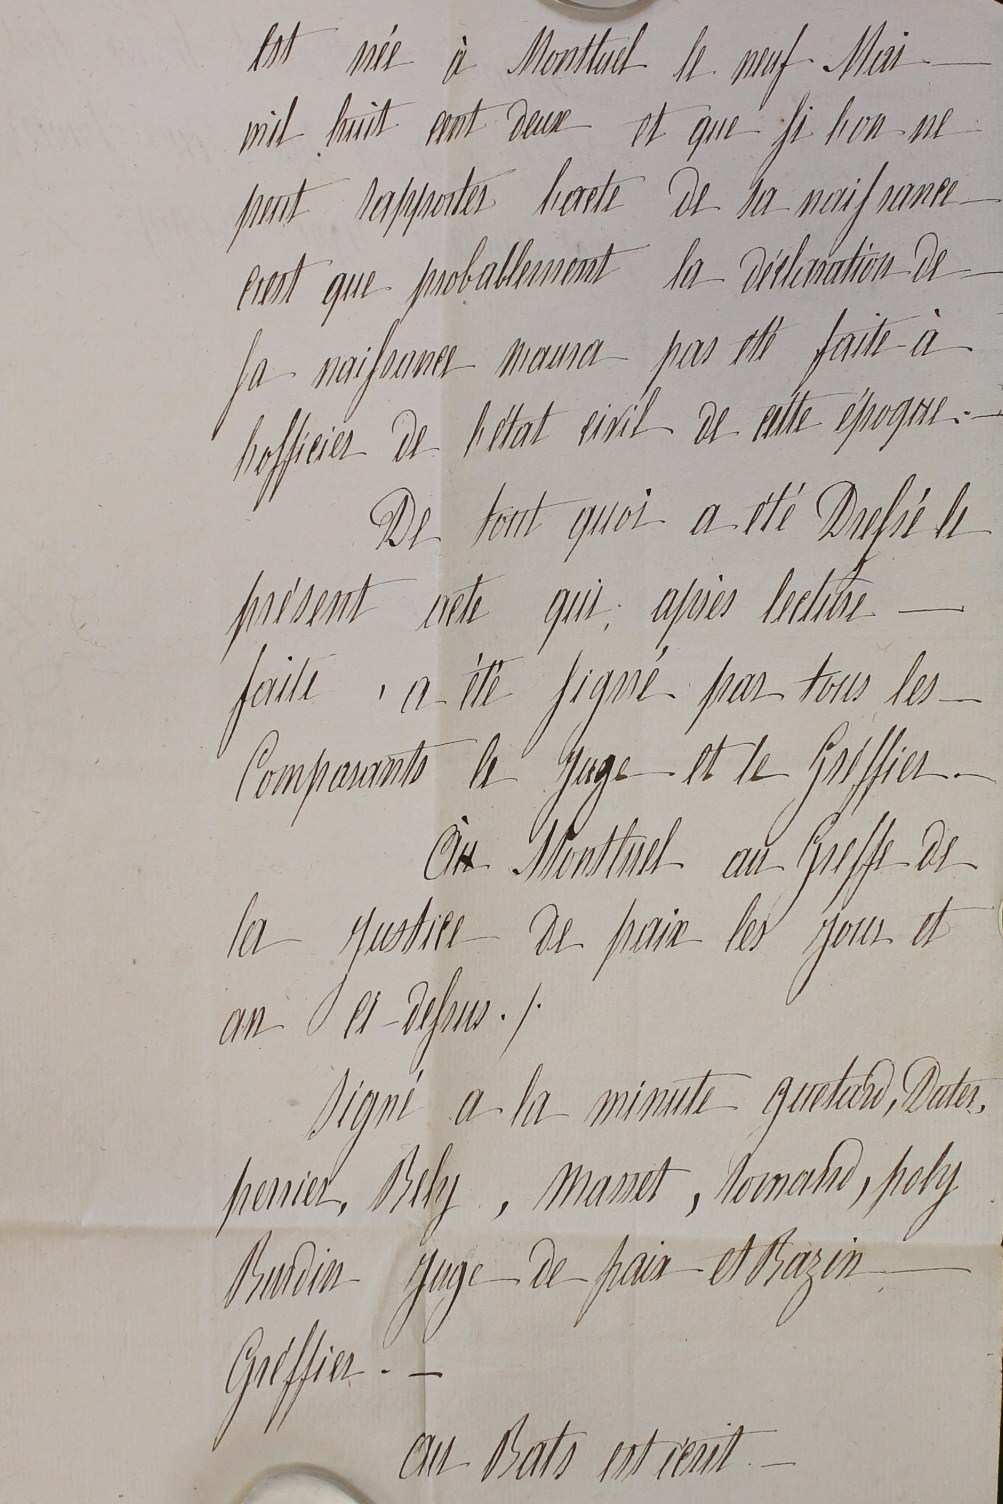 est née à Montluel le neuf Mai —
mil huit cent deux et que si l'on ne
peut rapporter l'acte de sa naissance —
c'est que probablement la déclaration de —
sa naissance n'aura pas été faite à
l'officier de l'état civil de cette époque. —
De tout quoi a été Dressé le
présent acte qui, après lecture —
faite, a été signé par tous les —
Comparants le juge et le Gréffier. —
Au Montluel au Greffe de
la justice de paix les jour et
an ci-dessus ./.
Signé a la minute guetard, Duter,
perrier, Bely, Manet, , poly
Burdin juge de paix et Bazin —
Gréffier . —
au Bats est écrit. —